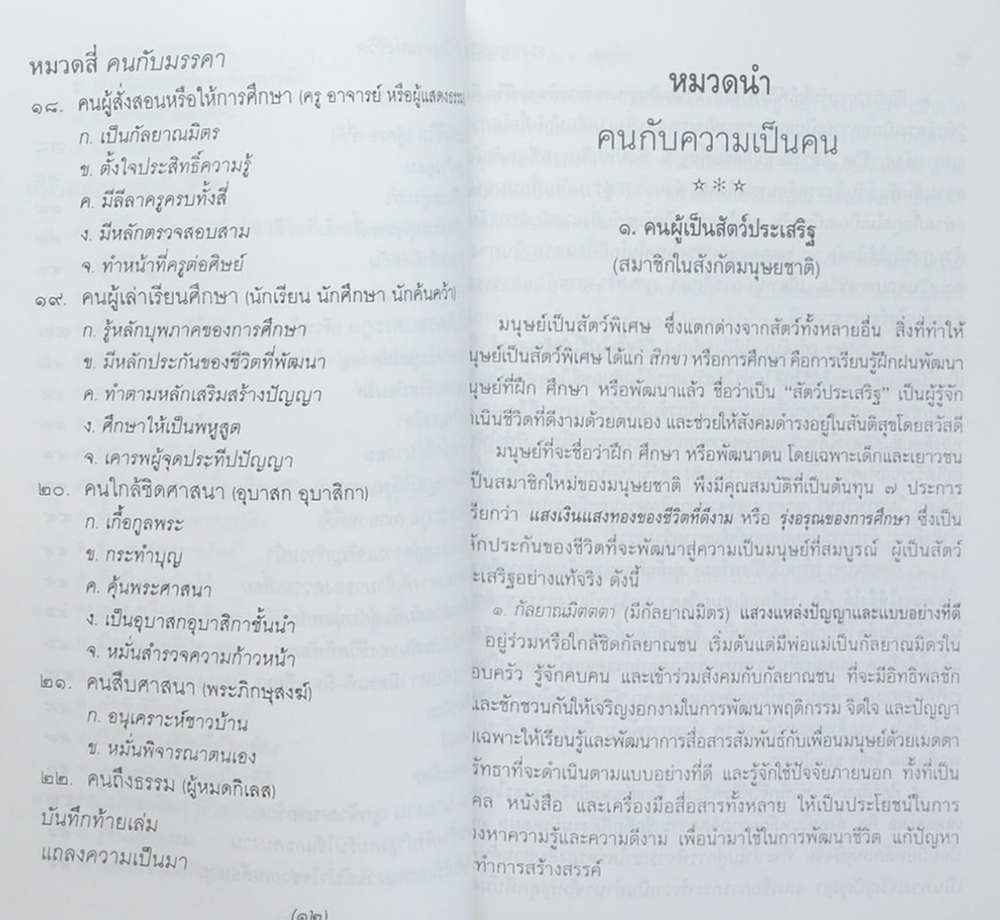 หมวดสี่ คนกับมรรคา
๑๘. คนผู้สั่งสอนหรือให้การศึกษา (ครู อาจารย์ หรือผู้แสดงธรรม)
ก. เป็นกัลยาณมิตร
ข. ตั้งใจประสิทธิ์ความรู้
ค. มีลีลาครูครบทั้งสี่
ง. มีหลักตรวจสอบสาม
จ. ทำหน้าที่ครูต่อศิษย์
๑๙. คนผู้เล่าเรียนศึกษา (นักเรียน นักศึกษา นักค้นคว้า)
ก. รู้หลักบุพภาคของการศึกษา
ข. มีหลักประกันของชีวิตที่พัฒนา
ค. ทำตามหลักเสริมสร้างปัญญา
ง. ศึกษาให้เป็นพหูสูต
จ. เคารพผู้จุดประทีปปัญญา
๒๐. คนใกล้ชิดศาสนา (อุบาสก อุบาสิกา)
ก. เกื้อกูลพระ
ข. กระทำบุญ
ค. คุ้นพระศาสนา
ง. เป็นอุบาสกอุบาสิกาชั้นนำ
จ. หมั่นสำรวจความก้าวหน้า
๒๑. คนสืบศาสนา (พระภิกษุสงฆ์)
ก. อนุเคราะห์ชาวบ้าน
ข. หมั่นพิจารณาตนเอง
๒๒. คนถึงธรรม (ผู้หมดกิเลส)
บันทึกท้ายเล่ม
แถลงความเป็นมา
(๑๒)
หมวดนำ
คนกับความเป็นคน
☆ * ☆
๑. คนผู้เป็นสัตว์ประเสริฐ
(สมาชิกในสังกัดมนุษยชาติ)
มนุษย์เป็นสัตว์พิเศษ ซึ่งแตกต่างจากสัตว์ทั้งหลายอื่น สิ่งที่ทำให้
นุษย์เป็นสัตว์พิเศษ ได้แก่ สิกขา หรือการศึกษา คือการเรียนรู้ฝึกฝนพัฒนา
นุษย์ที่ฝึก ศึกษา หรือพัฒนาแล้ว ชื่อว่าเป็น “สัตว์ประเสริฐ” เป็นผู้รู้จัก
เนินชีวิตที่ดีงามด้วยตนเอง และช่วยให้สังคมดำรงอยู่ในสันติสุขโดยสวัสดี
มนุษย์ที่จะชื่อว่าฝึก ศึกษา หรือพัฒนาตน โดยเฉพาะเด็กและเยาวชน
ป็นสมาชิกใหม่ของมนุษยชาติ พึงมีคุณสมบัติที่เป็นต้นทุน ๗ ประการ
รียกว่า แสงเงินแสงทองของชีวิตที่ดีงาม หรือ รุ่งอรุณของการศึกษา ซึ่งเป็น
ลักประกันของชีวิตที่จะพัฒนาสู่ความเป็นมนุษย์ที่สมบูรณ์ ผู้เป็นสัตว์
ะเสริฐอย่างแท้จริง ดังนี้
๑. กัลยาณมิตตตา (มีกัลยาณมิตร) แสวงแหล่งปัญญาและแบบอย่างที่ดี
อยู่ร่วมหรือใกล้ชิดกัลยาณชน เริ่มต้นแต่มีพ่อแม่เป็นกัลยาณมิตรใน
อบครัว รู้จักคบคน และเข้าร่วมสังคมกับกัลยาณชน ที่จะมีอิทธิพลชัก
และชักชวนกันให้เจริญงอกงามในการพัฒนาพฤติกรรม จิตใจ และปัญญา
ยเฉพาะให้เรียนรู้และพัฒนาการสื่อสารสัมพันธ์กับเพื่อนมนุษย์ด้วยเมตตา
รัทธาที่จะดำเนินตามแบบอย่างที่ดี และรู้จักใช้ปัจจัยภายนอก ทั้งที่เป็น
คล หนังสือ และเครื่องมือสื่อสารทั้งหลาย ให้เป็นประโยชน์ในการ
งหาความรู้และความดีงาม เพื่อนำมาใช้ในการพัฒนาชีวิต แก้ปัญหา
ทำการสร้างสรรค์